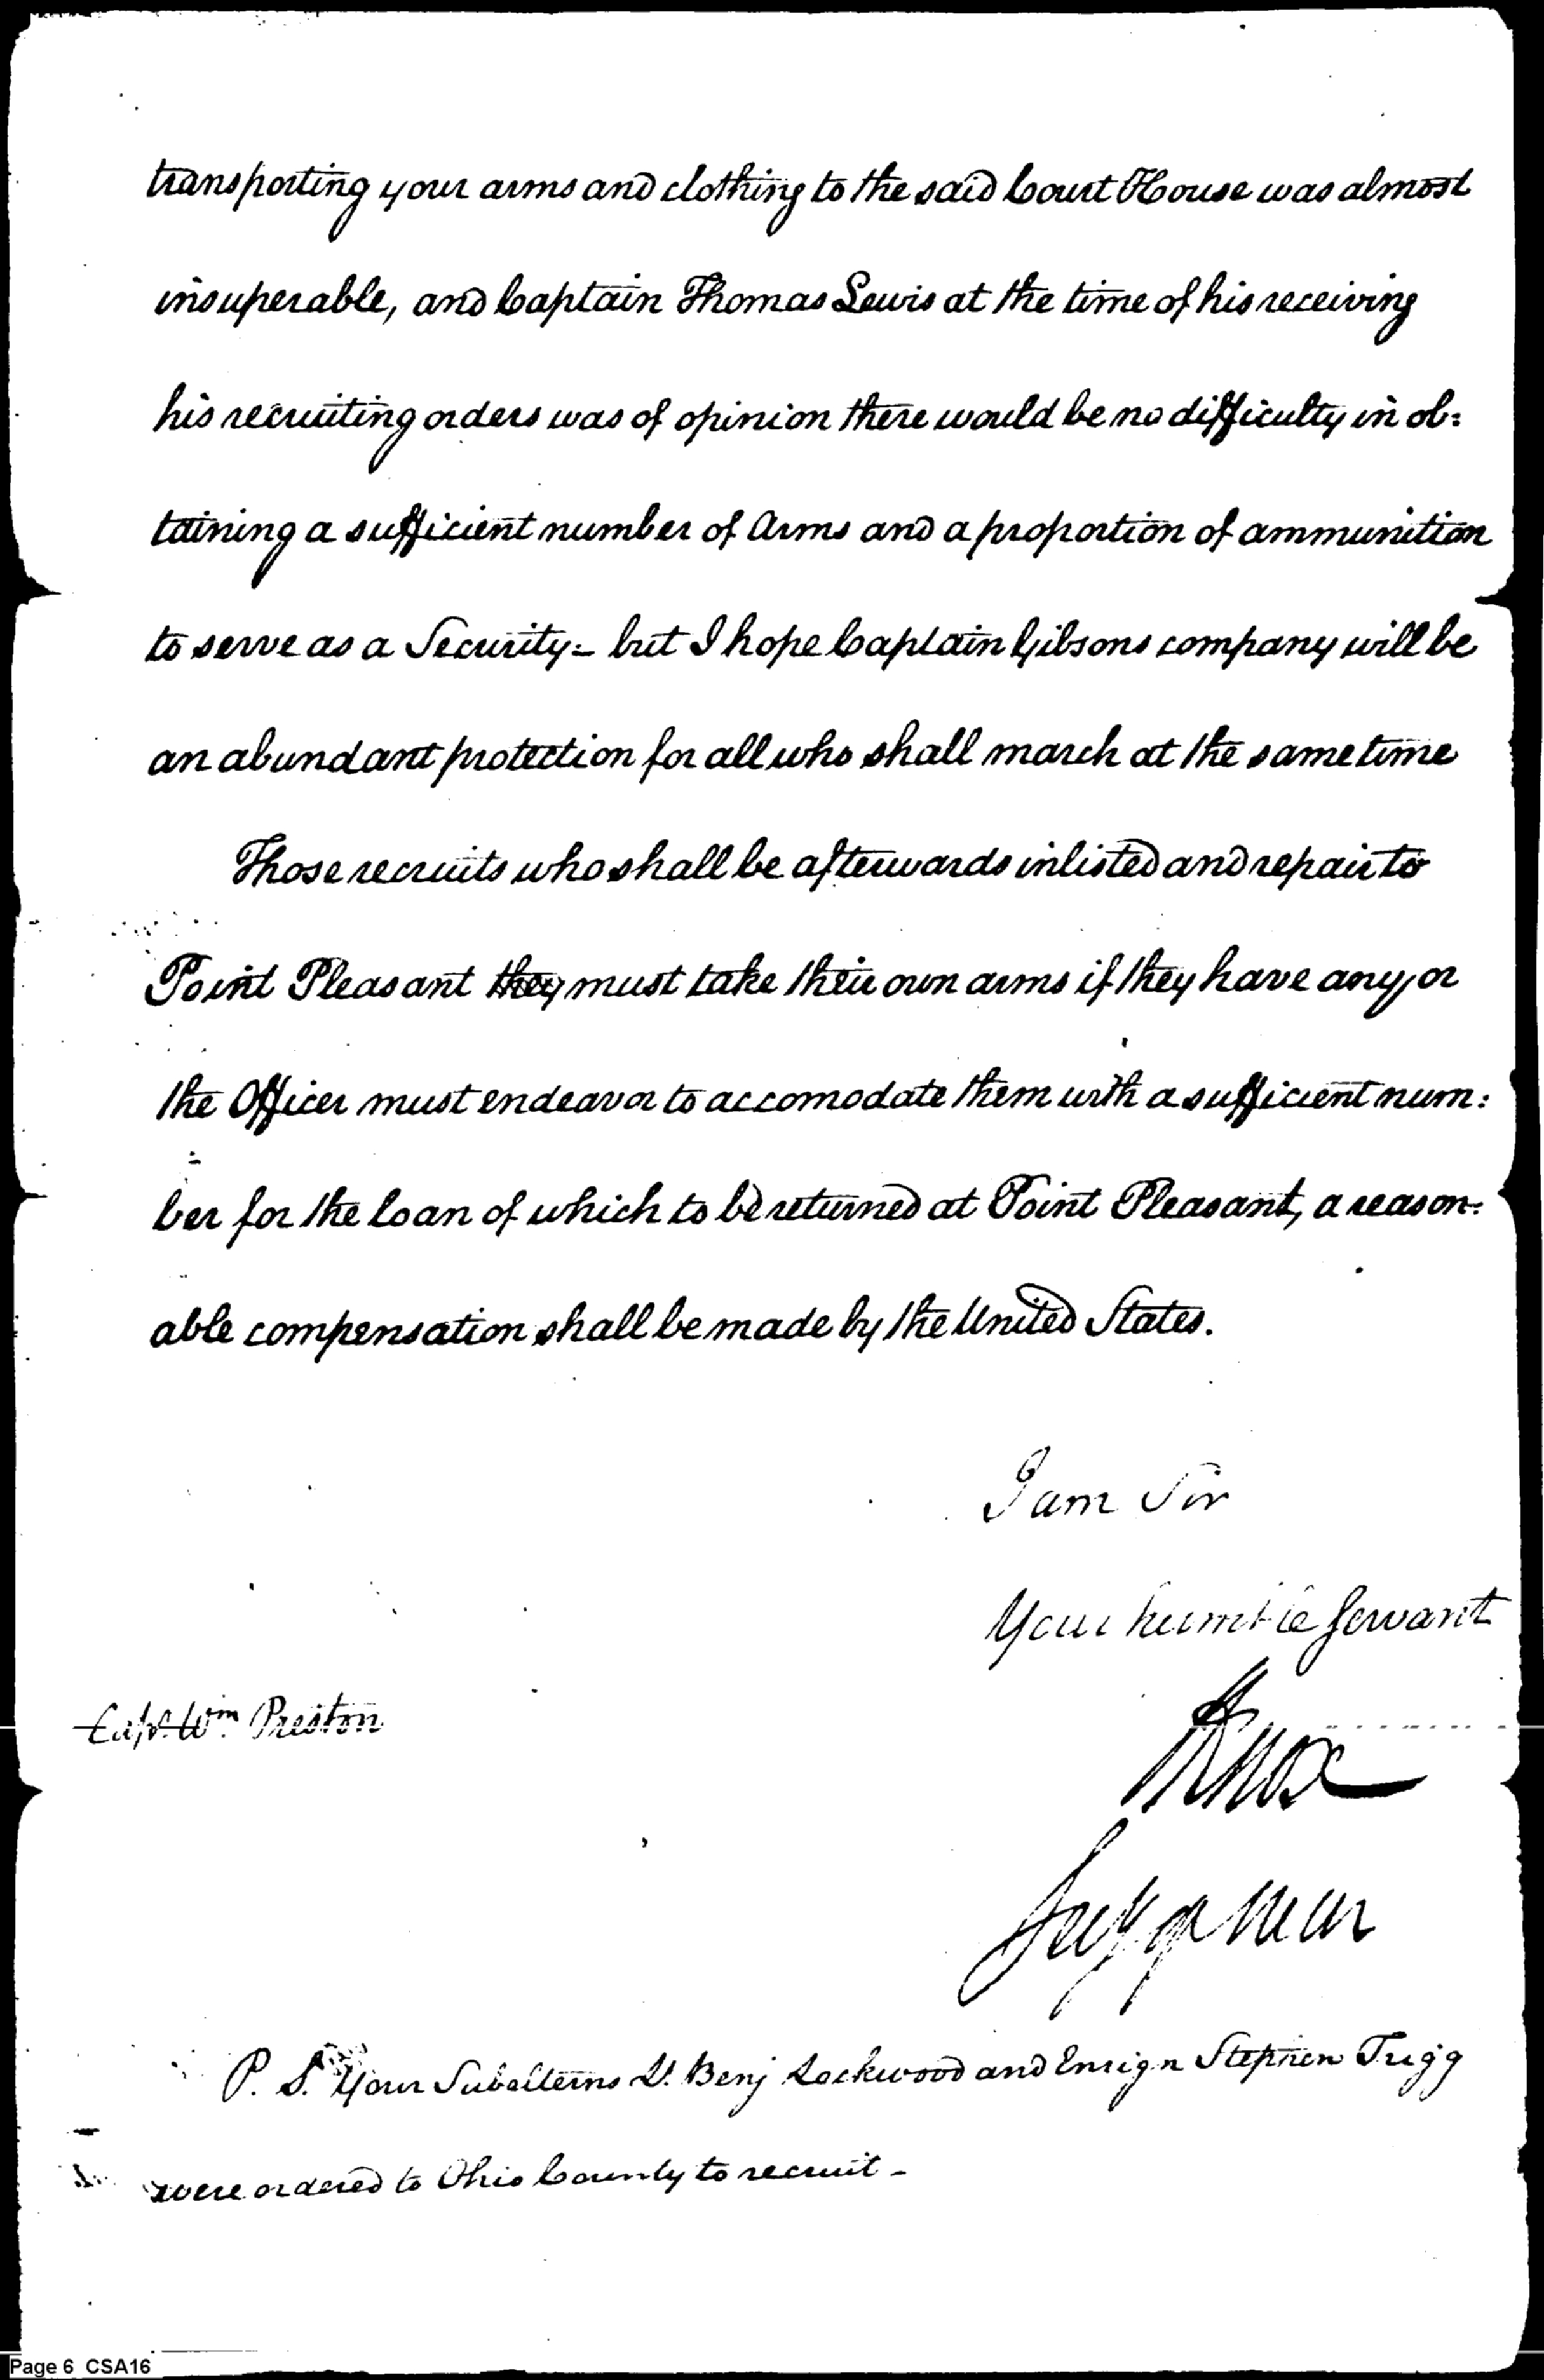 transporting your arms and clothing to the said Court House was almost
insuperable, and Captain Thomas Lewis at the time of his receiving
his recruiting orders was of opinion there would be no difficulty in ob=
taining a sufficient number of Arms and a proportion of ammunition
to serve as a Security - but I hope Captain Gibsons company will be
an abundant protection for all who shall march at the same time
Those recruits who shall be afterwards inlisted and repair to
Point Pleasant they must take their own arms if they have any, or
the Officer must endeavor to accomodate them with a sufficient num=
ber for the loan of which to be returned at Point Pleasant, a reason=
able compensation shall be made by the United States.
I am Sir
Your humble Servant
Capt. Wm Preston
HKnox
Secy of War
P. S. Your Subalterns Lt. Benj Lockwood and Ensign Stephen Trigg
were ordered to Ohio County to recruit -
Page 6 CSA16